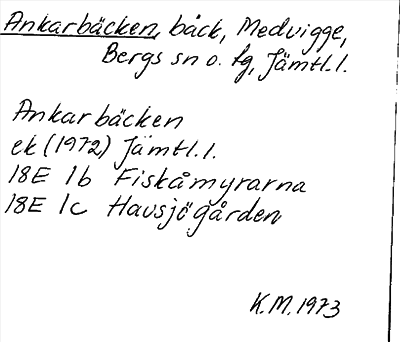 Ankarbäcken, bäck, Medvigge,
Bergs sn o. tg, Jämtl.l.
Ankarbäcken
ek (1972) Jämtl.l.
18E 1b Fiskåmyrarna
18E 1c Havsjögården
K.M. 1973